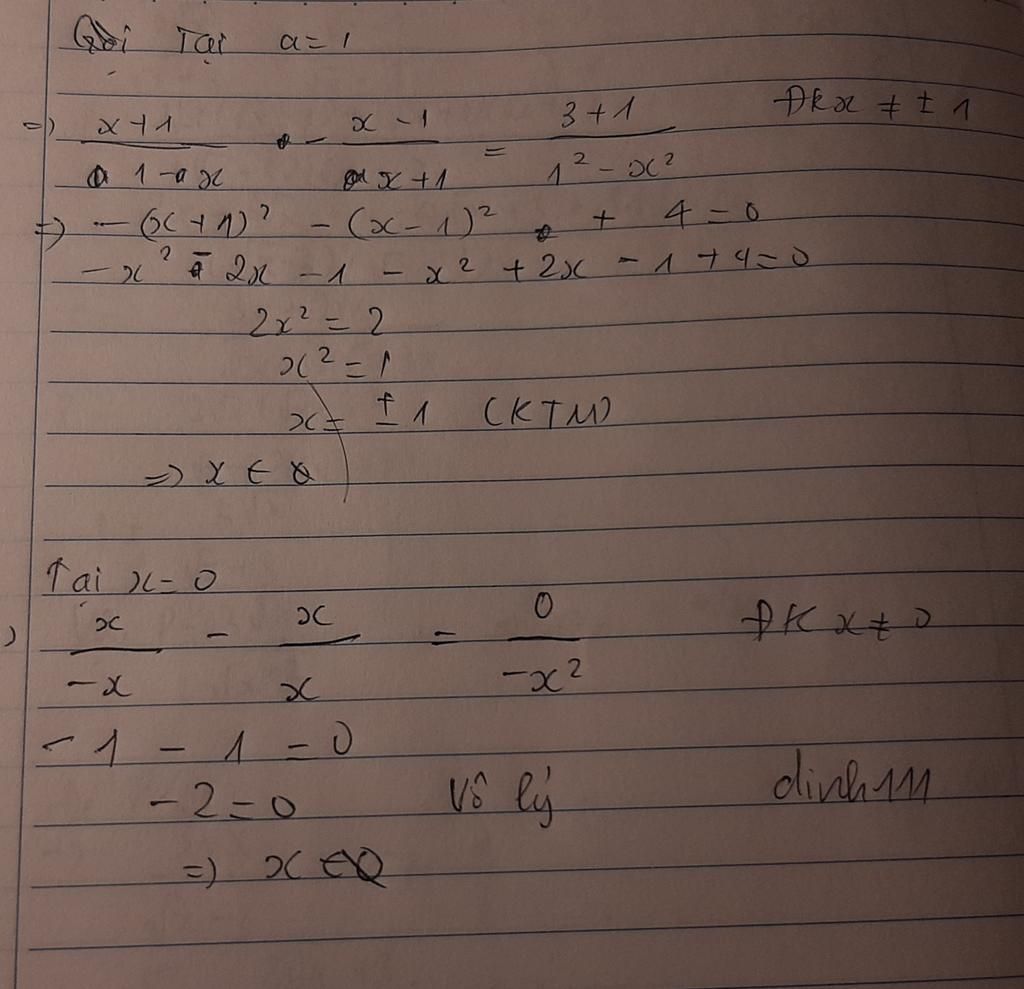 Gọi Tại a = 1
=) x+1 / 1-x - x-1 / x+1 = 3+1 / 1² - x² Đk x ≠ ± 1
=) -(x+1)² - (x-1)² + 4 = 0
-x² - 2x - 1 - x² + 2x - 1 + 4 = 0
2x² = 2
x² = 1
x = ± 1 (KTM)
=) x ∈ Ø
Tại x = 0
) x / -x - x / x = 0 / -x² ĐK x ≠ 0
-1 - 1 = 0
-2 = 0 Vô lý dinh111
=) x ∈ Ø